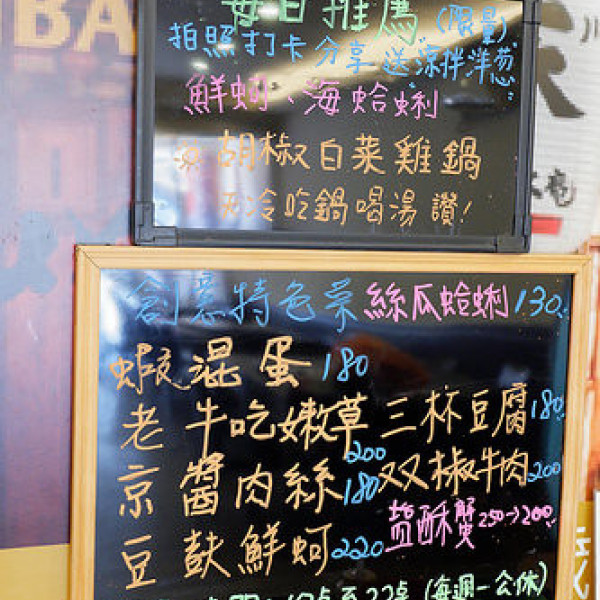 BA
每日推薦(限量)
拍照打卡分享送涼拌洋蔥
鮮蚵、海蛤蜊
胡椒白菜雞鍋
天冷吃鍋喝湯讚!
創意特色菜 絲瓜蛤蜊130
蝦混蛋180
老牛吃嫩草200 三杯豆腐180
京醬肉絲180 双椒牛肉200
豆鼓鮮蚵220 盐酥蟹250→200
至22点(每週一公休)